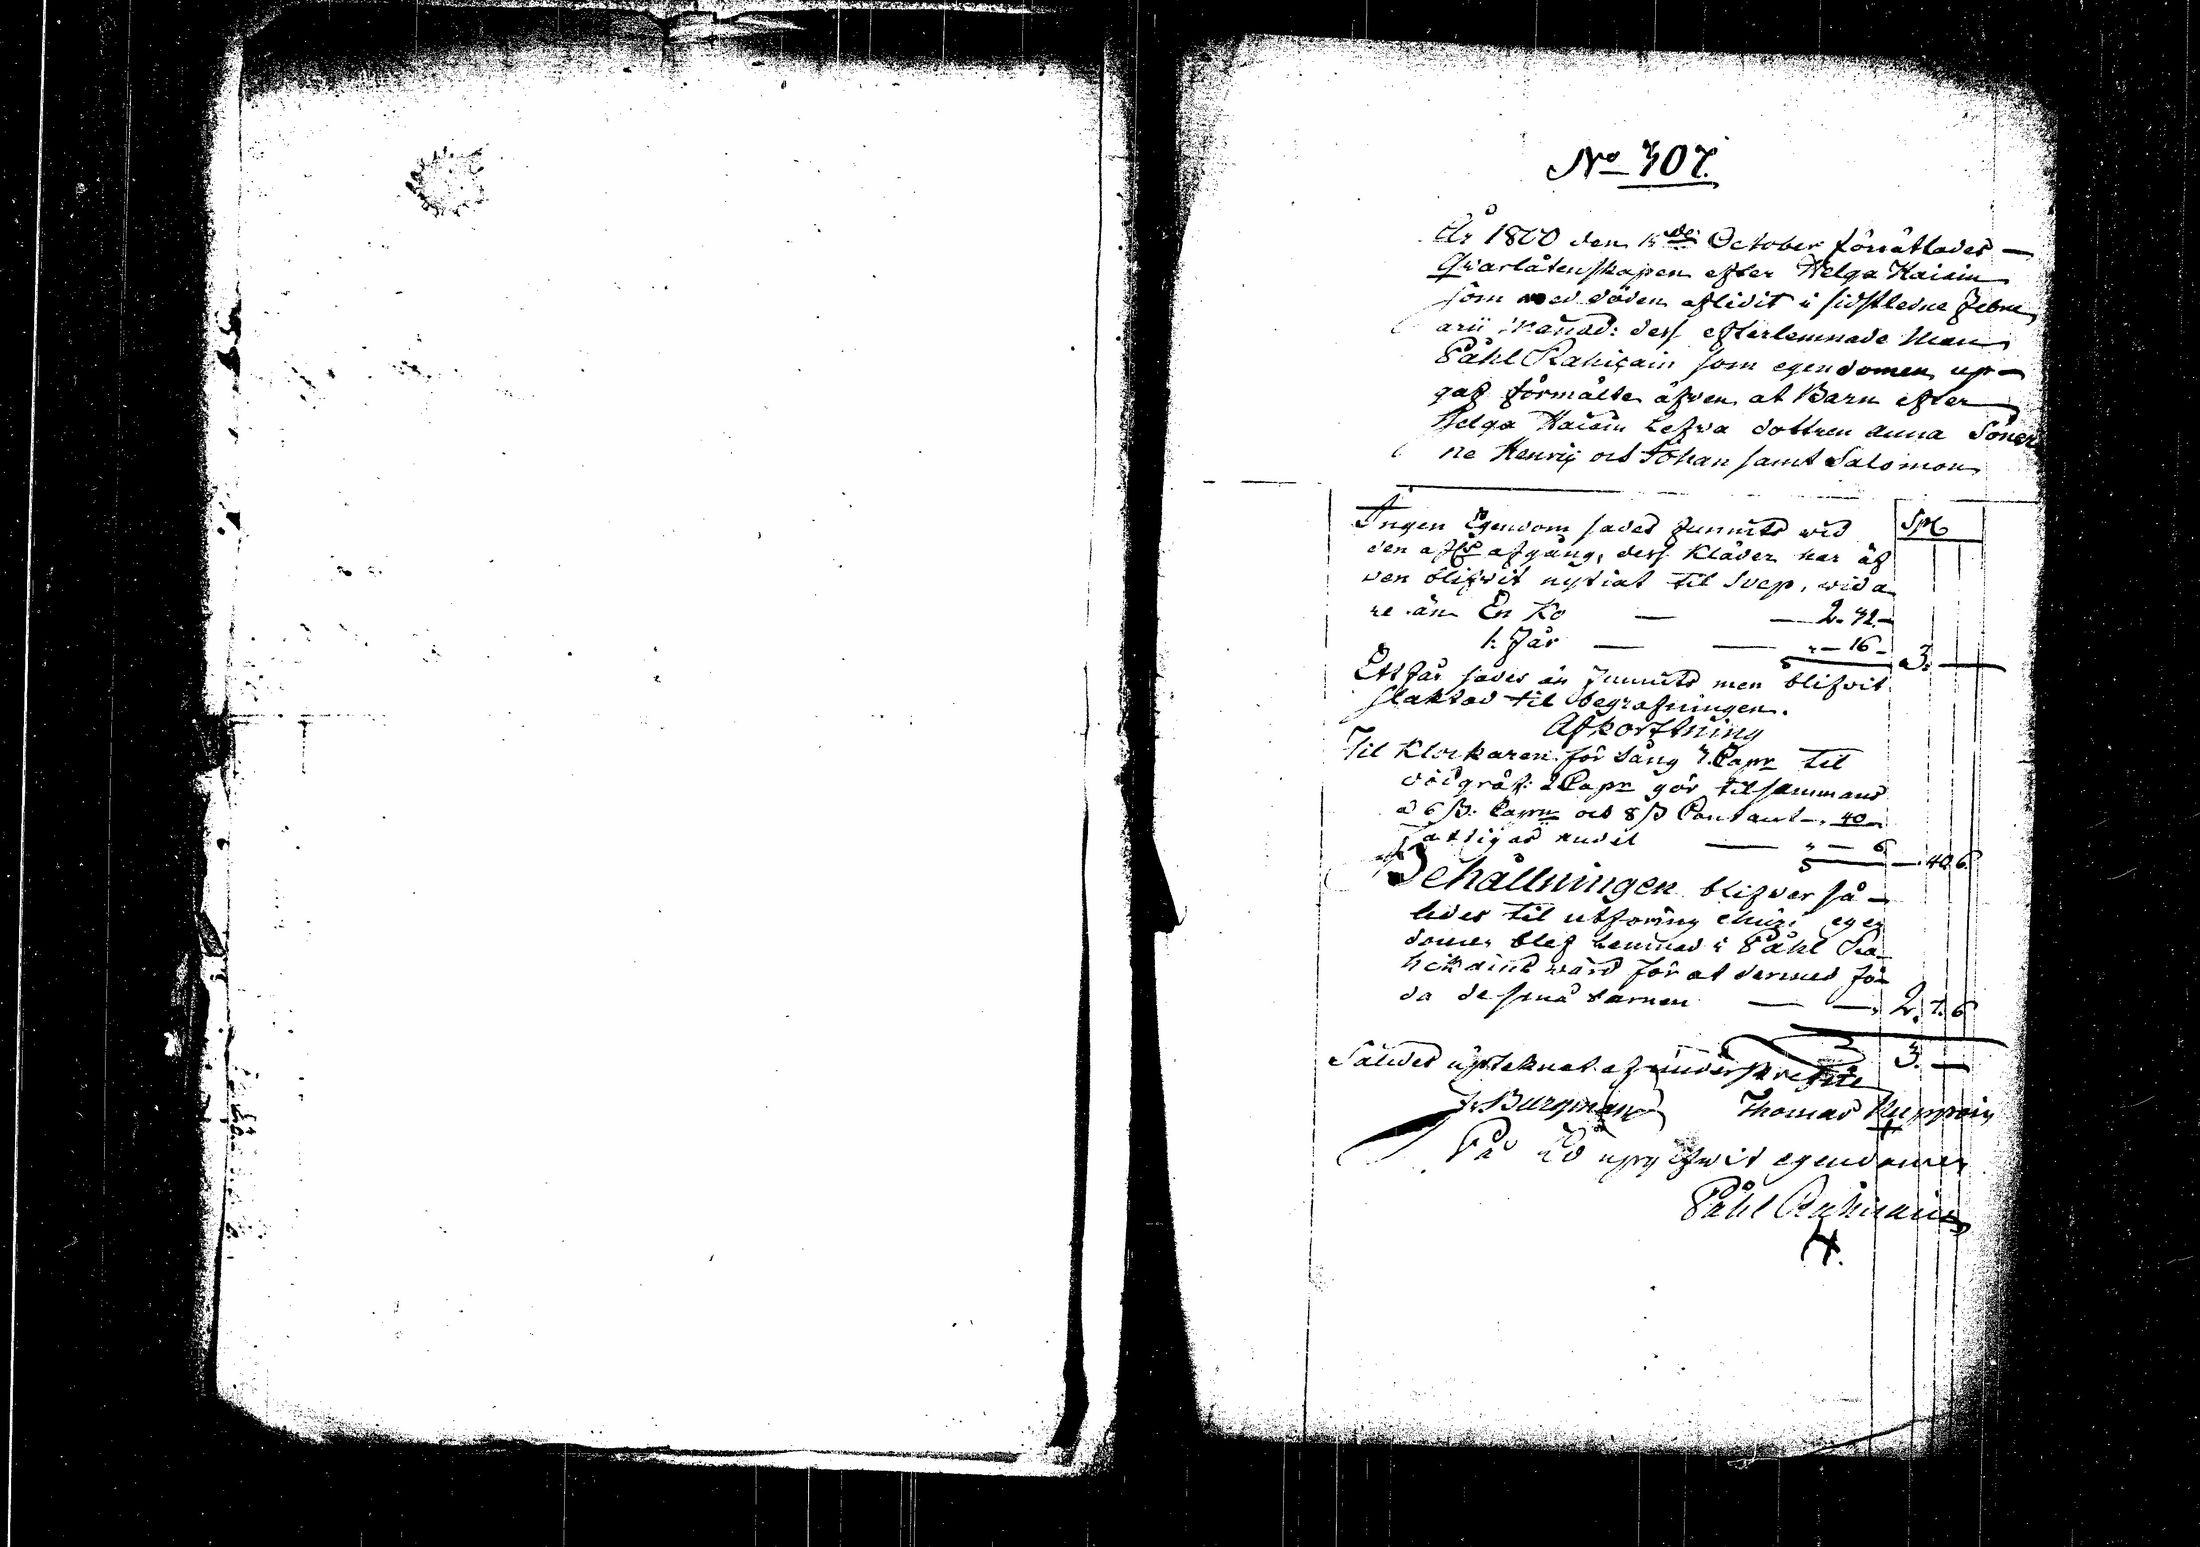 No 307.
År 1800 den 15de October förrättades
Qvarlåtenskapen efter Helga Kaisin
som med döden aflidit i sidstledne Febru
arii Månad: dess efterlemnade Man
Påhl Rahicain som egendomen up-
gaf förmälte äfven at Barn efter
Helga Kaisin Lefva dottren Anna Söner
ne Henric och Johan samt Salomon
Spl
Ingen Egendom sades funnits vid
den afls afgång, dess Kläder har äf
ven blifvit nytiat til Svep, vida
re än En Ko — 2. 32.
1. Får — — " — 16 — 3. —
Ett får sades än funnits men blifvit
slaktad til begrafningen.
Afkortning
Til Klockaren för Sång 3. Capr til
2 Capr gör tilsammans
a 6 ß. Capn och 8 ß Contant — 40 —
Fattigas andel — " — 6 — 40. 6.
Behållningen blifver så-
ledes til utföring egen
domen blef Lemnad i Påhl Ra
hickains vård för at dermed fö
da de små barnen — — 2. 7. 6
3. —
Således upteknat af underskrefne
J. Burgman Thomas Kuppain
På Ed uppgifvit egendomen
Påhl Rahicain